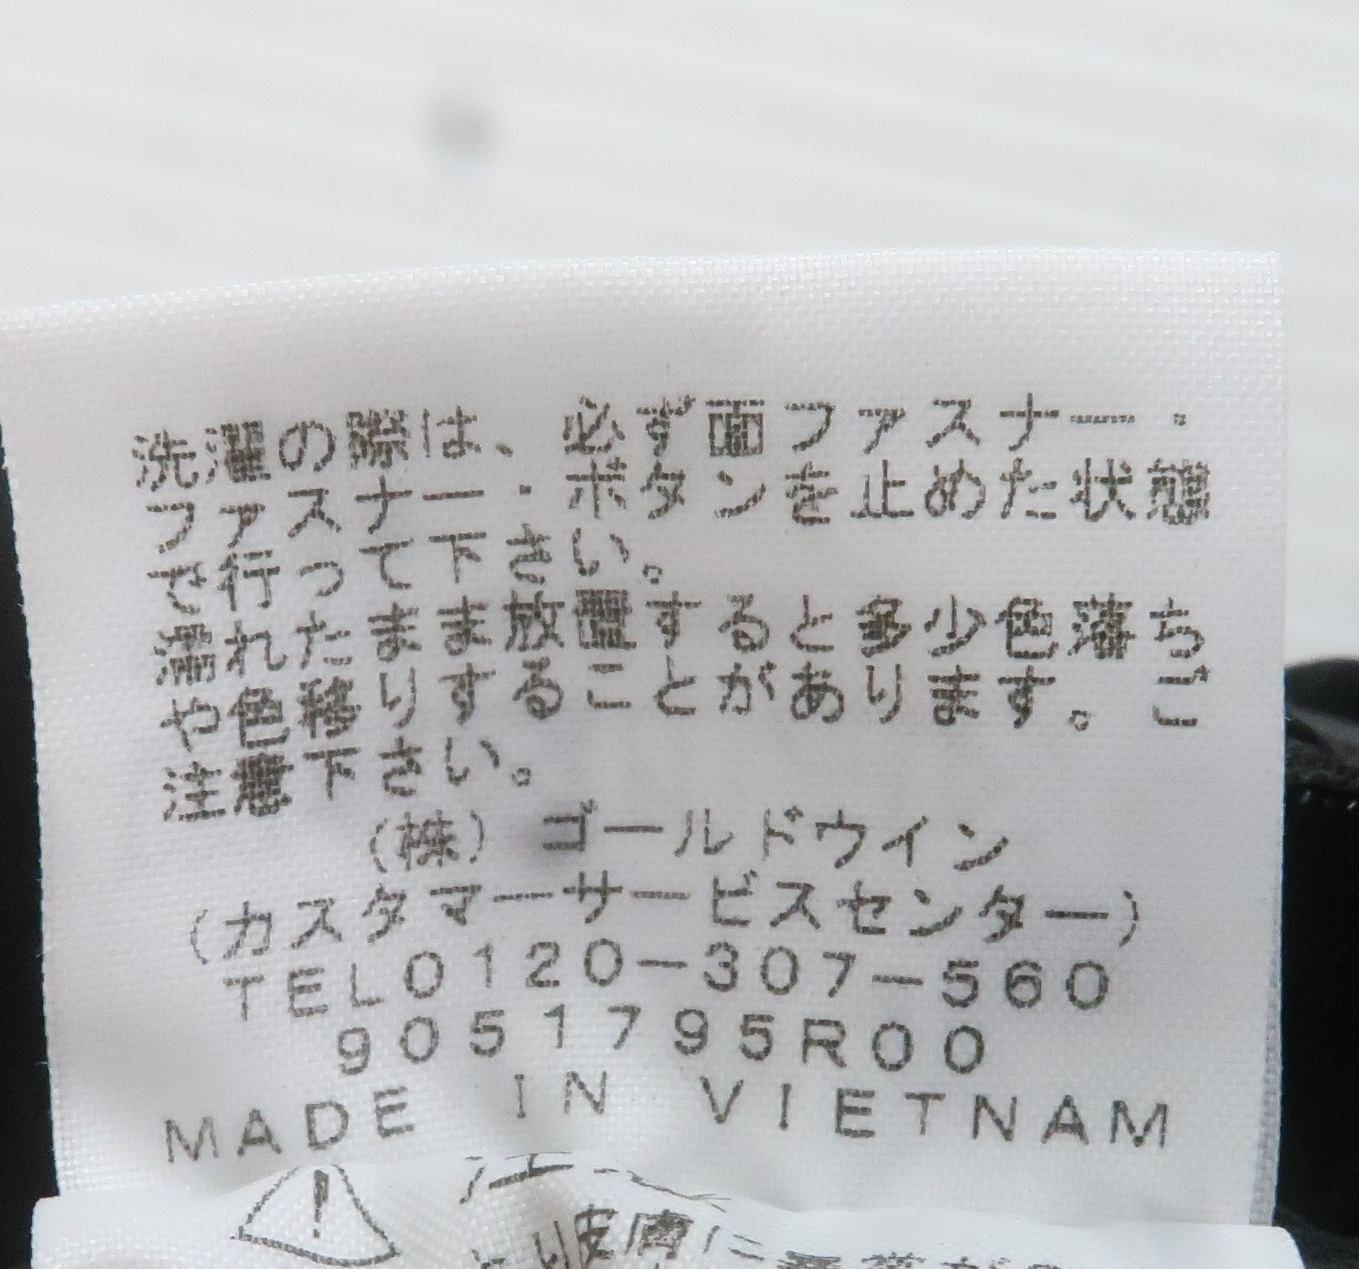 洗濯の際は、必ず面ファスナー・
ファスナー・ボタンを止めた状態
で行って下さい。
濡れたまま放置すると多少色落ち
や色移りすることがあります。ご
注意下さい。
(株) ゴールドウイン
(カスタマーサービスセンター)
TEL0120-307-560
9051795R00
MADE IN VIETNAM
皮膚に